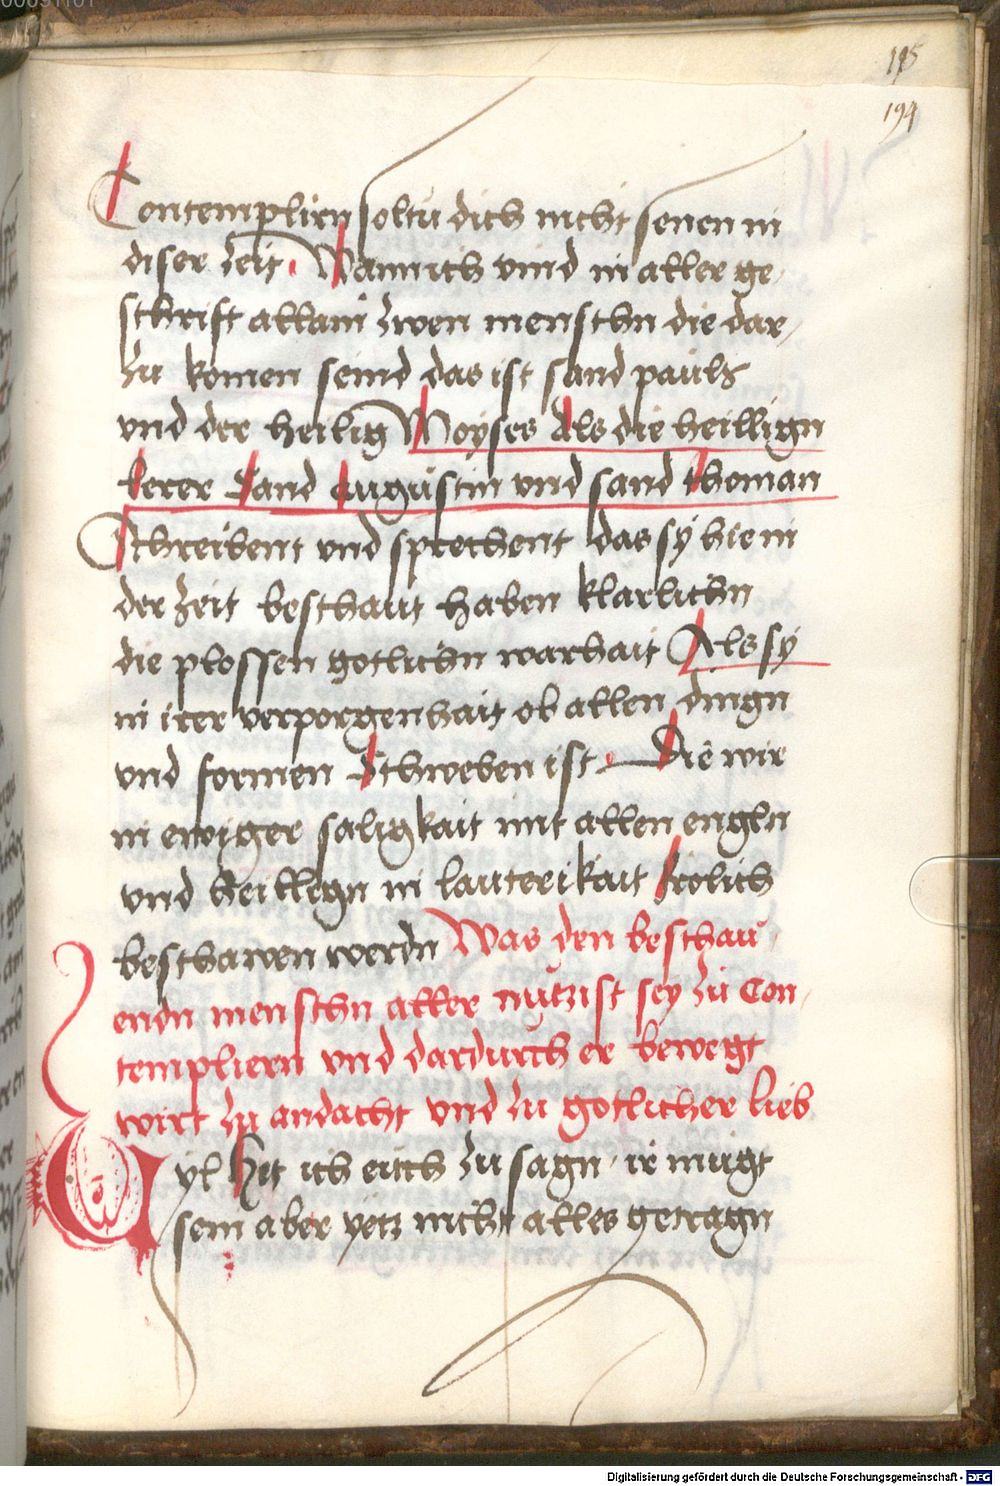 195
194
Contemplirn soltu dich nicht senen in
diser zeit. Wann ich vind in aller ge,
schrift allain zwen menschn die dar,
zu komen seind das ist sand pauls
vnd der heilig Moyses Als die heillign
lerer Sand augustin vnd sand thoman
Schreibent vnd sprechent das sy hie in
der zeit beschaut haben klarlichn
die plossen gotlichn warhait Als sy
in irer verporgenhait ob allen dingn
vnd formen Schweben ist. Die wir
in ewiger saligkait mit allen engln
vnd heillign in lauterikait frolich
beschawen werdn Was den beschau,
endn menschn aller nutzist sey zu Con,
templiern vnd dardurch er bewegt
wirt zu andacht vnd zu gotlicher lieb
Vyl het ich euch zu sagn, ir mugt
sein aber yetz nicht alles getragn
Digitalisierung gefördert durch die Deutsche Forschungsgemeinschaft - DFG